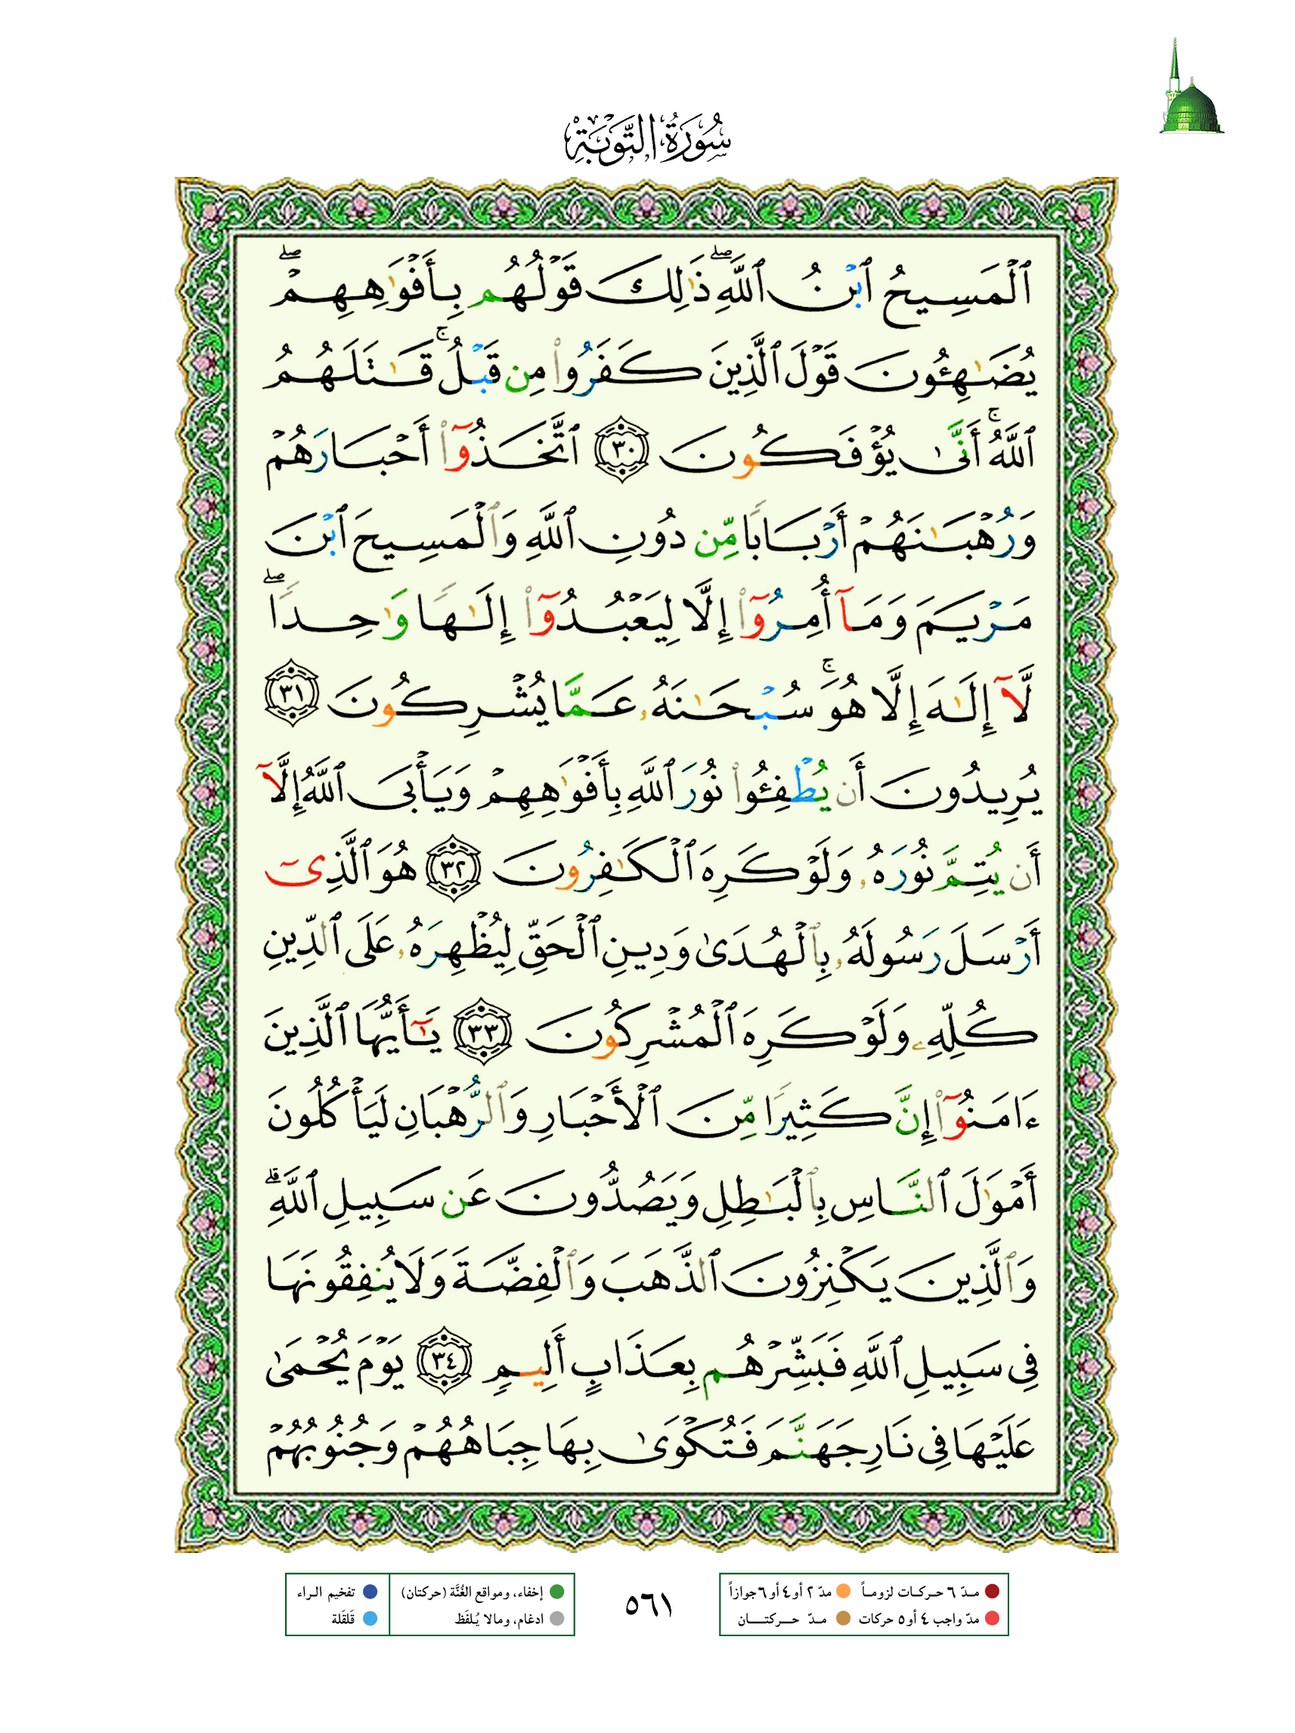 سُورَةُ التَّوۡبَةِ
ٱلۡمَسِيحُ ٱبۡنُ ٱللَّهِۖ ذَٰلِكَ قَوۡلُهُم بِأَفۡوَٰهِهِمۡۖ
يُضَٰهِـُٔونَ قَوۡلَ ٱلَّذِينَ كَفَرُواْ مِن قَبۡلُۚ قَٰتَلَهُمُ
ٱللَّهُۚ أَنَّىٰ يُؤۡفَكُونَ ٣٠ ٱتَّخَذُوٓاْ أَحۡبَارَهُمۡ
وَرُهۡبَٰنَهُمۡ أَرۡبَابٗا مِّن دُونِ ٱللَّهِ وَٱلۡمَسِيحَ ٱبۡنَ
مَرۡيَمَ وَمَآ أُمِرُوٓاْ إِلَّا لِيَعۡبُدُوٓاْ إِلَٰهٗا وَٰحِدٗاۖ
لَّآ إِلَٰهَ إِلَّا هُوَۚ سُبۡحَٰنَهُۥ عَمَّا يُشۡرِكُونَ ٣١
يُرِيدُونَ أَن يُطۡفِـُٔواْ نُورَ ٱللَّهِ بِأَفۡوَٰهِهِمۡ وَيَأۡبَى ٱللَّهُ إِلَّآ
أَن يُتِمَّ نُورَهُۥ وَلَوۡ كَرِهَ ٱلۡكَٰفِرُونَ ٣٢ هُوَ ٱلَّذِيٓ
أَرۡسَلَ رَسُولَهُۥ بِٱلۡهُدَىٰ وَدِينِ ٱلۡحَقِّ لِيُظۡهِرَهُۥ عَلَى ٱلدِّينِ
كُلِّهِۦ وَلَوۡ كَرِهَ ٱلۡمُشۡرِكُونَ ٣٣ يَٰٓأَيُّهَا ٱلَّذِينَ
ءَامَنُوٓاْ إِنَّ كَثِيرٗا مِّنَ ٱلۡأَحۡبَارِ وَٱلرُّهۡبَانِ لَيَأۡكُلُونَ
أَمۡوَٰلَ ٱلنَّاسِ بِٱلۡبَٰطِلِ وَيَصُدُّونَ عَن سَبِيلِ ٱللَّهِۗ
وَٱلَّذِينَ يَكۡنِزُونَ ٱلذَّهَبَ وَٱلۡفِضَّةَ وَلَا يُنفِقُونَهَا
فِي سَبِيلِ ٱللَّهِ فَبَشِّرۡهُم بِعَذَابٍ أَلِيمٖ ٣٤ يَوۡمَ يُحۡمَىٰ
عَلَيۡهَا فِي نَارِ جَهَنَّمَ فَتُكۡوَىٰ بِهَا جِبَاهُهُمۡ وَجُنُوبُهُمۡ
مدّ ٦ حركات لزوماً مدّ ٢ أو ٤ أو ٦ جوازاً
مدّ واجب ٤ أو ٥ حركات مدّ حركتان
٥٦١
إخفاء، ومواقع الغُنَّة (حركتان) تفخيم الراء
ادغام، ومالا يُلفَظ قَلقَلة